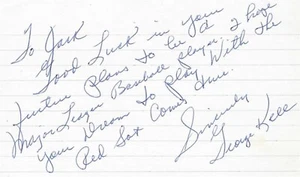 To Jack
Good Luck in Your
Future plans to be a
Major League Baseball player. I hope
your Dream to play With the
Red Sox Comes true.
Sincerely
George Kell